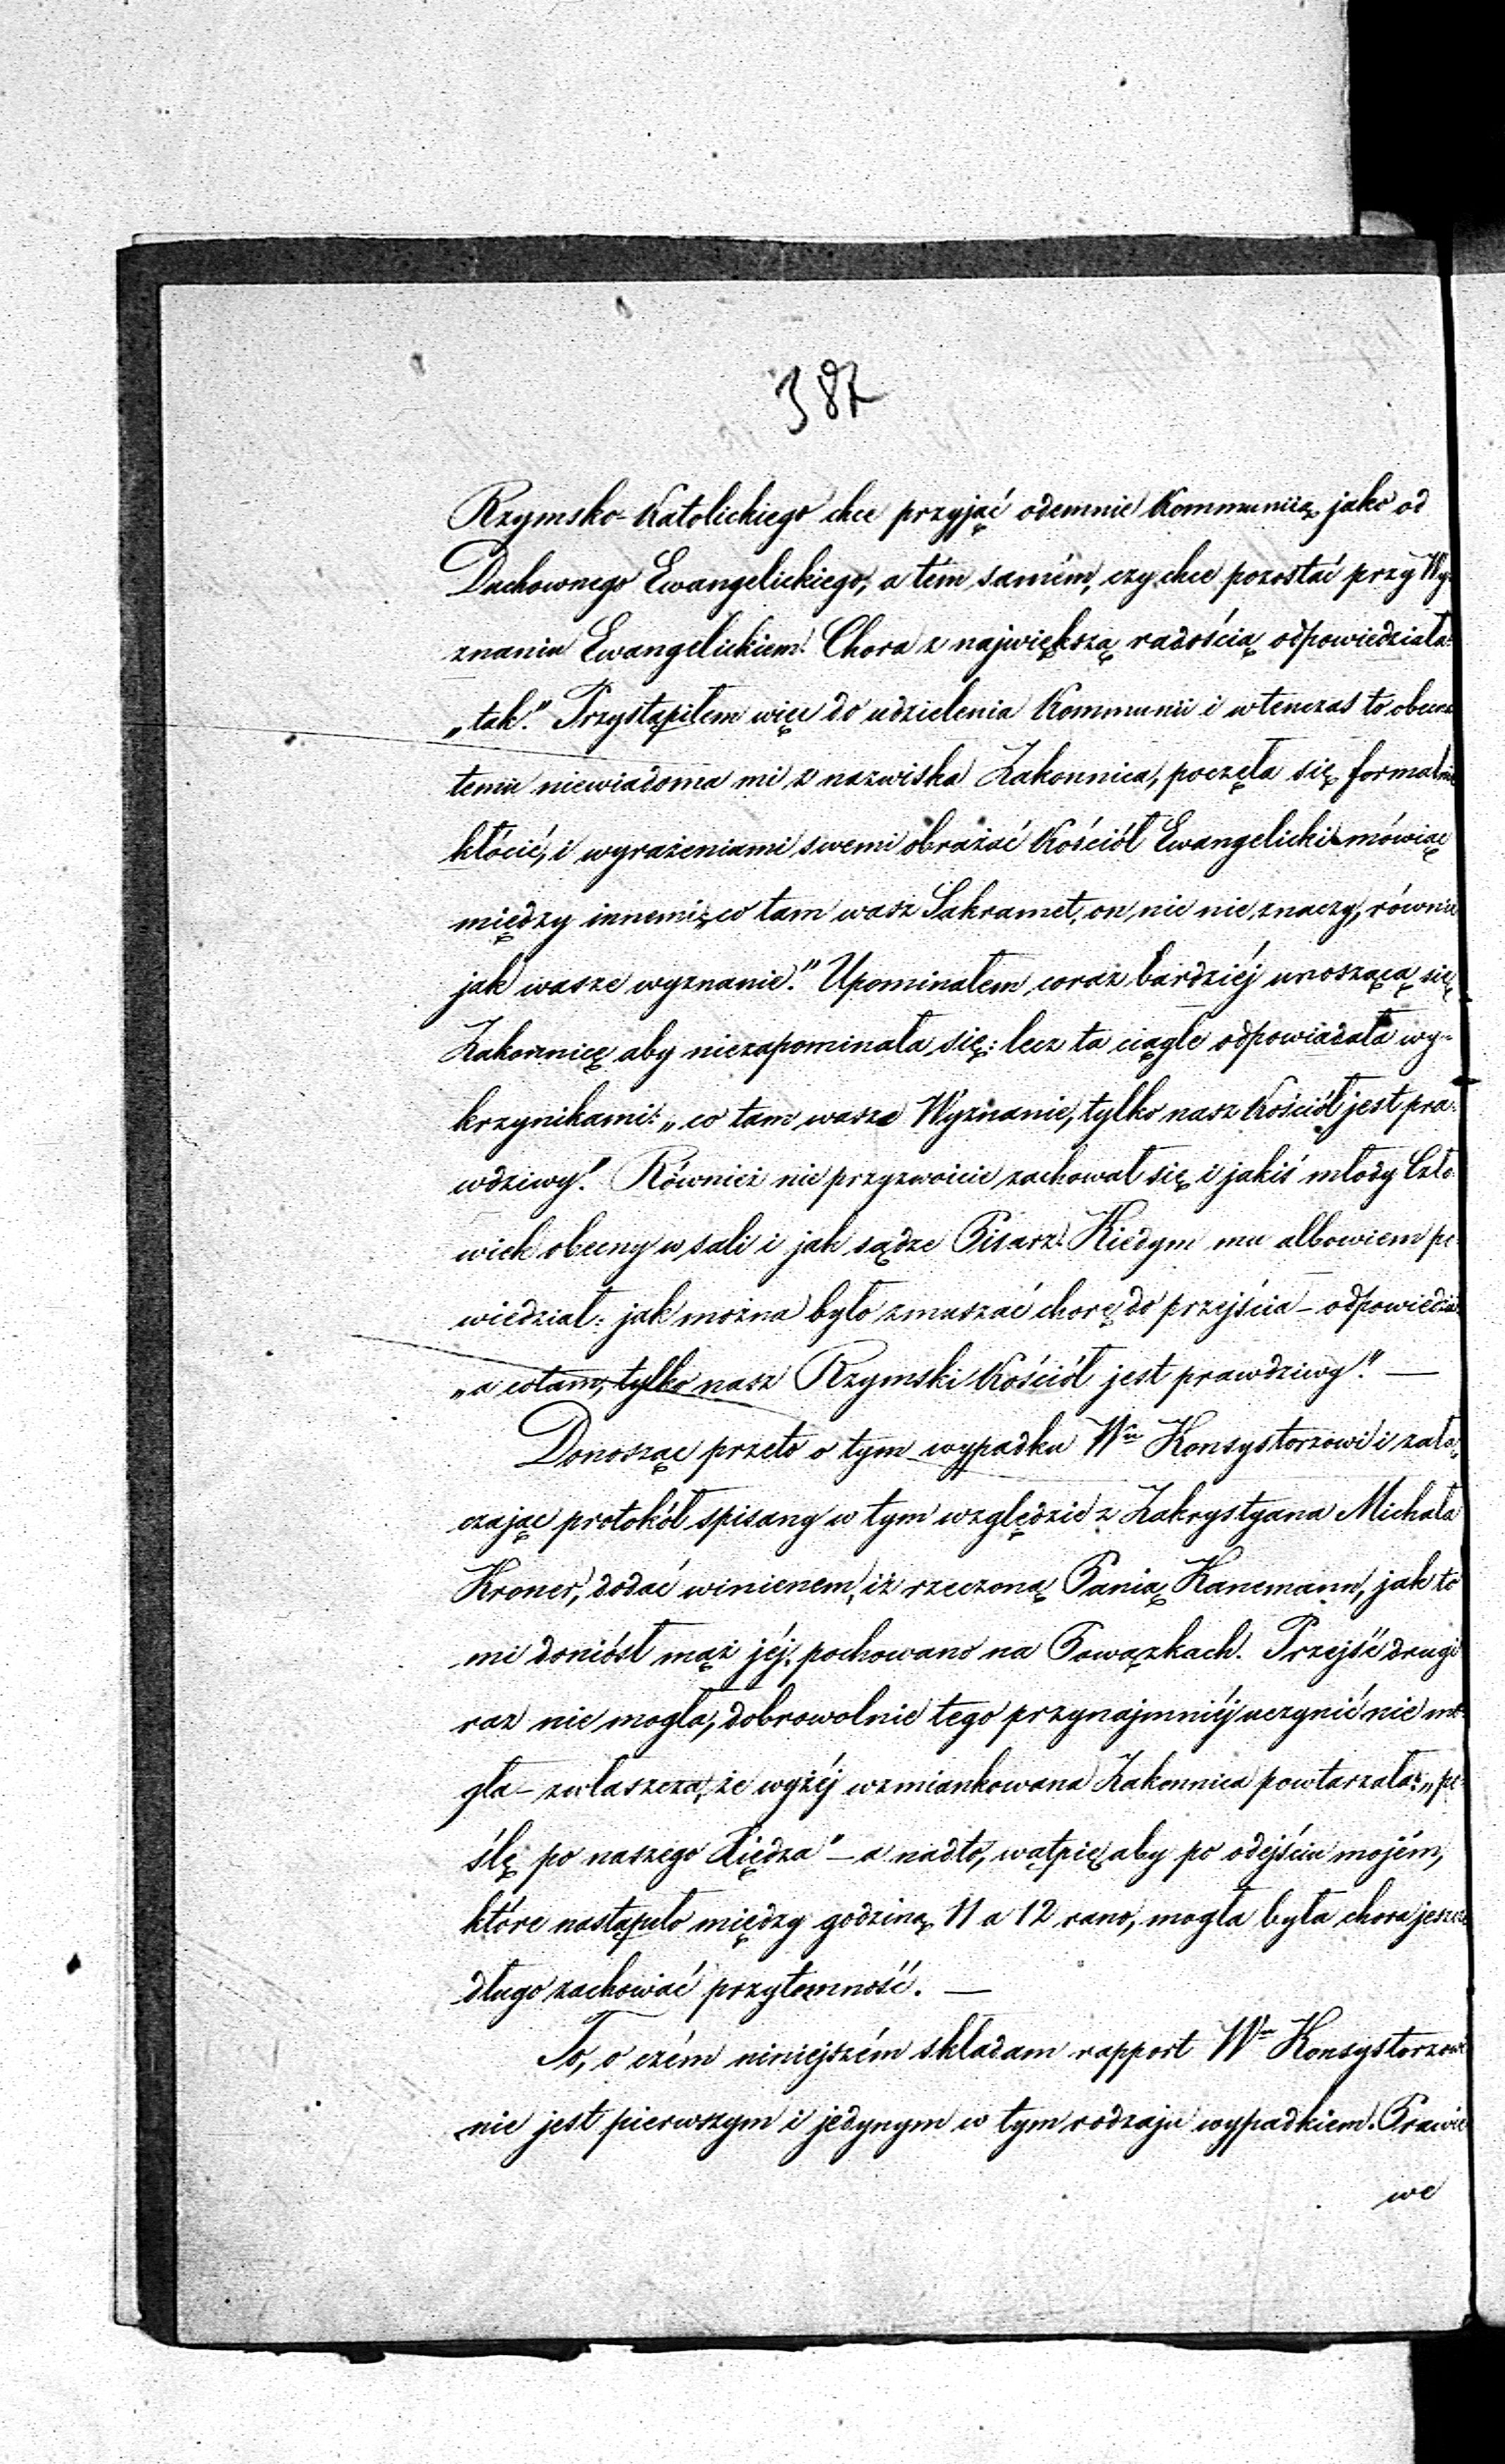 387
Rzymsko-Katolickiego chce przyjąć odemnie Kommuniią jako od
Duchownego Ewangelickiego, a tém samém, czy chce pozostać przy Wy-
znaniu Ewangelickiem! Chora z największą radością odpowiedziała:
„tak." Przystąpiłem więc do udzielenia Kommunii i wtenczas to obecna
temu niewiadoma mi z nazwiska Zakonnica, poczęła się formalnie
kłócić, i wyrażeniami swemi obrażać Kościół Ewangelicki mówiąc
między innemi „co tam wasz Sakramet, on nic nie znaczy, równie
jak wasze wyznanie." Upominałem coraz bardziéj unoszącą się
Zakonnicę aby niezapominała się: lecz ta ciągle odpowiadała wy-
krzynikami: „co tam wasze Wyznanie, tylko nasz Kościół jest pra-
wdziwy." Również nie przyzwoicie zachował się i jakiś młody Czło-
wiek obecny w sali i jak sądze Pisarz. Kiedym mu albowiem po-
wiedział: jak można było zmuszać chorę do przejścia – odpowiedział
„a cotam, tylko nasz Rzymski Kościół jest prawdziwy." —
Donosząc przeto o tym wypadku Wmu Konsystorzowi i załą-
czając protokół spisany w tym względzie z Zakrystyana Michała
Kroner, dodać winienem, iż rzeczoną Panią Kanemann, jak to
mi doniósł mąż jéj, pochowano na Powązkach. Przejść drugi
raz nie mogła, dobrowolnie tego przynajmniéj uczynić nie mo-
gła – zwłaszcza, że wyżéj wzmiankowana Zakonnica powtarzała: „po-
ślę po naszego Xiędza" – a nadto, wątpię aby po odejściu mojém,
które nastąpiło między godziną 11 a 12 rano, mogła była chora jeszcze
długo zachować przytomność. —
To, o czém niniejszém składam rapport Wmu Konsystorzowi
nie jest pierwszym i jedynym w tym rodzaju wypadkiem. Prawie
we